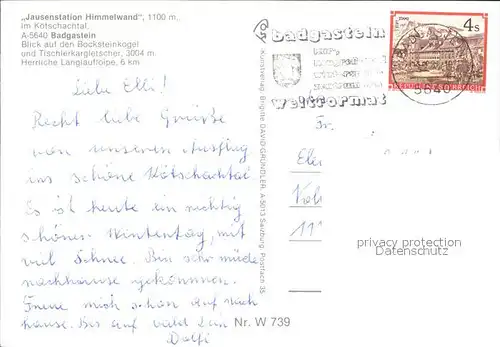 „Jausenstation Himmelwand", 1100 m,
im Kötschachtal,
A-5640 Badgastein
Blick auf den Bocksteinkogel
und Tischlerkargletscher, 3004 m.
Herrliche Langlaufloipe, 6 km
Liebe Elli!
Recht liebe Grüße
von unseren Ausflug
ins schöne Kötschachtal
Es ist heute ein richtig
schöner Wintertag, mit
viel Schnee. Bin sehr müde
nachhause gekommen.
Freue mich schon auf nach
hause. Bis auf bald Dein
Dolfi
Nr. W 739
Kunstverlag Brigitte DAVID-GRÜNDLER, A-5013 Salzburg, Postfach 35
badgastein
weltformat
5640
4 s
Fr.
privacy protection
Datenschutz